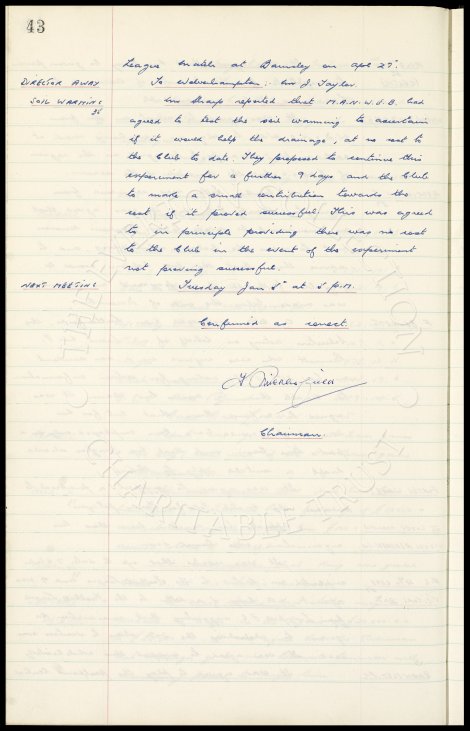 43
League match at Barnsley on Apl 27:
DIRECTOR AWAY To Wolverhampton :- Mr J. Taylor.
SOIL WARMING Mr Sharp reported that M.A.N.W.E.B. had
agreed to test the soil warming to ascertain
if it would help the drainage, at no cost to
the Club to date. They proposed to continue this
experiment for a further 9 days and the Club
to make a small contribution towards the
cost if it proved successful. This was agreed
to in principle providing there was no cost
to the Club in the event of the experiment
not proving successful.
NEXT MEETING Tuesday Jan 5th at 5 P.M.
Confirmed as correct.
Chairman.
THE EVERTON COLLECTION
CHARITABLE TRUST